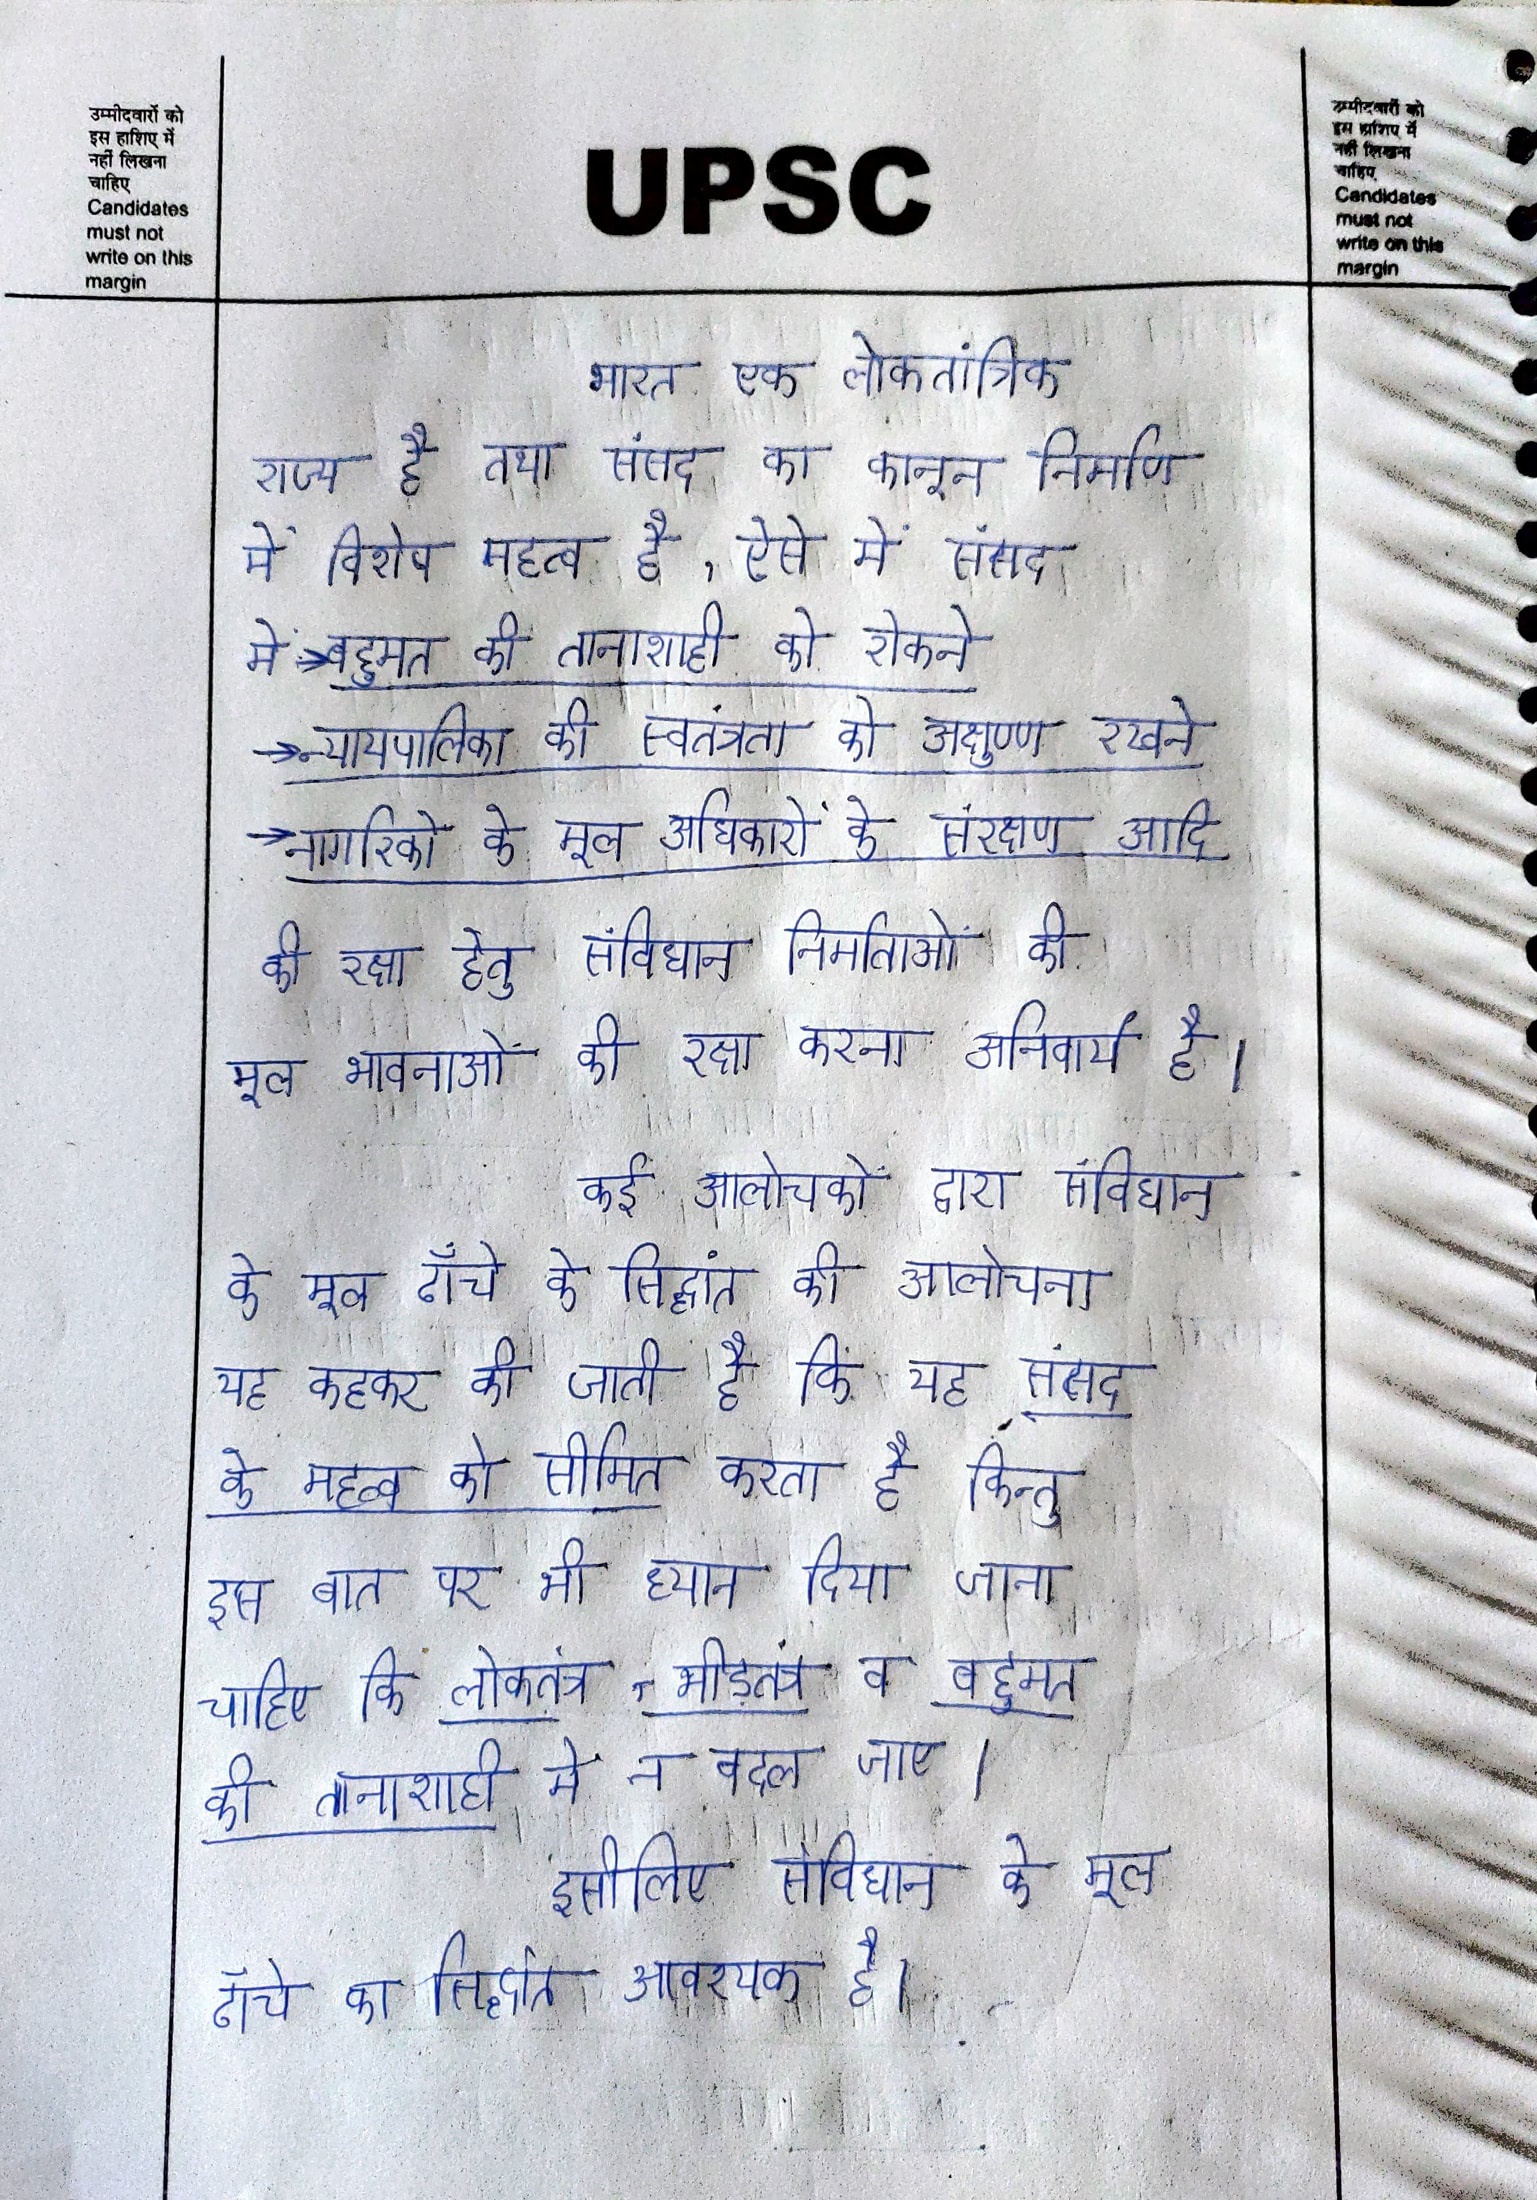 उम्मीदवारों को
इस हाशिए में
नहीं लिखना
चाहिए
Candidates
must not
write on this
margin
UPSC
उम्मीदवारों को
इस हाशिए में
नहीं लिखना
चाहिए
Candidates
must not
write on this
margin
भारत एक लोकतांत्रिक
राज्य है तथा संसद का कानून निर्माण
में विशेष महत्व है, ऐसे में संसद
में →बहुमत की तानाशाही को रोकने
→न्यायपालिका की स्वतंत्रता को अक्षुण्ण रखने
→नागरिको के मूल अधिकारों के संरक्षण आदि
की रक्षा हेतु संविधान निर्माताओं की
मूल भावनाओं की रक्षा करना अनिवार्य है।
कई आलोचकों द्वारा संविधान
के मूल ढाँचे के सिद्धांत की आलोचना
यह कहकर की जाती है कि यह संसद
के महत्व को सीमित करता है किन्तु
इस बात पर भी ध्यान दिया जाना
चाहिए कि लोकतंत्र, भीड़तंत्र व बहुमत
की तानाशाही में न बदल जाए।
इसीलिए संविधान के मूल
ढाँचे का सिद्धांत आवश्यक है।